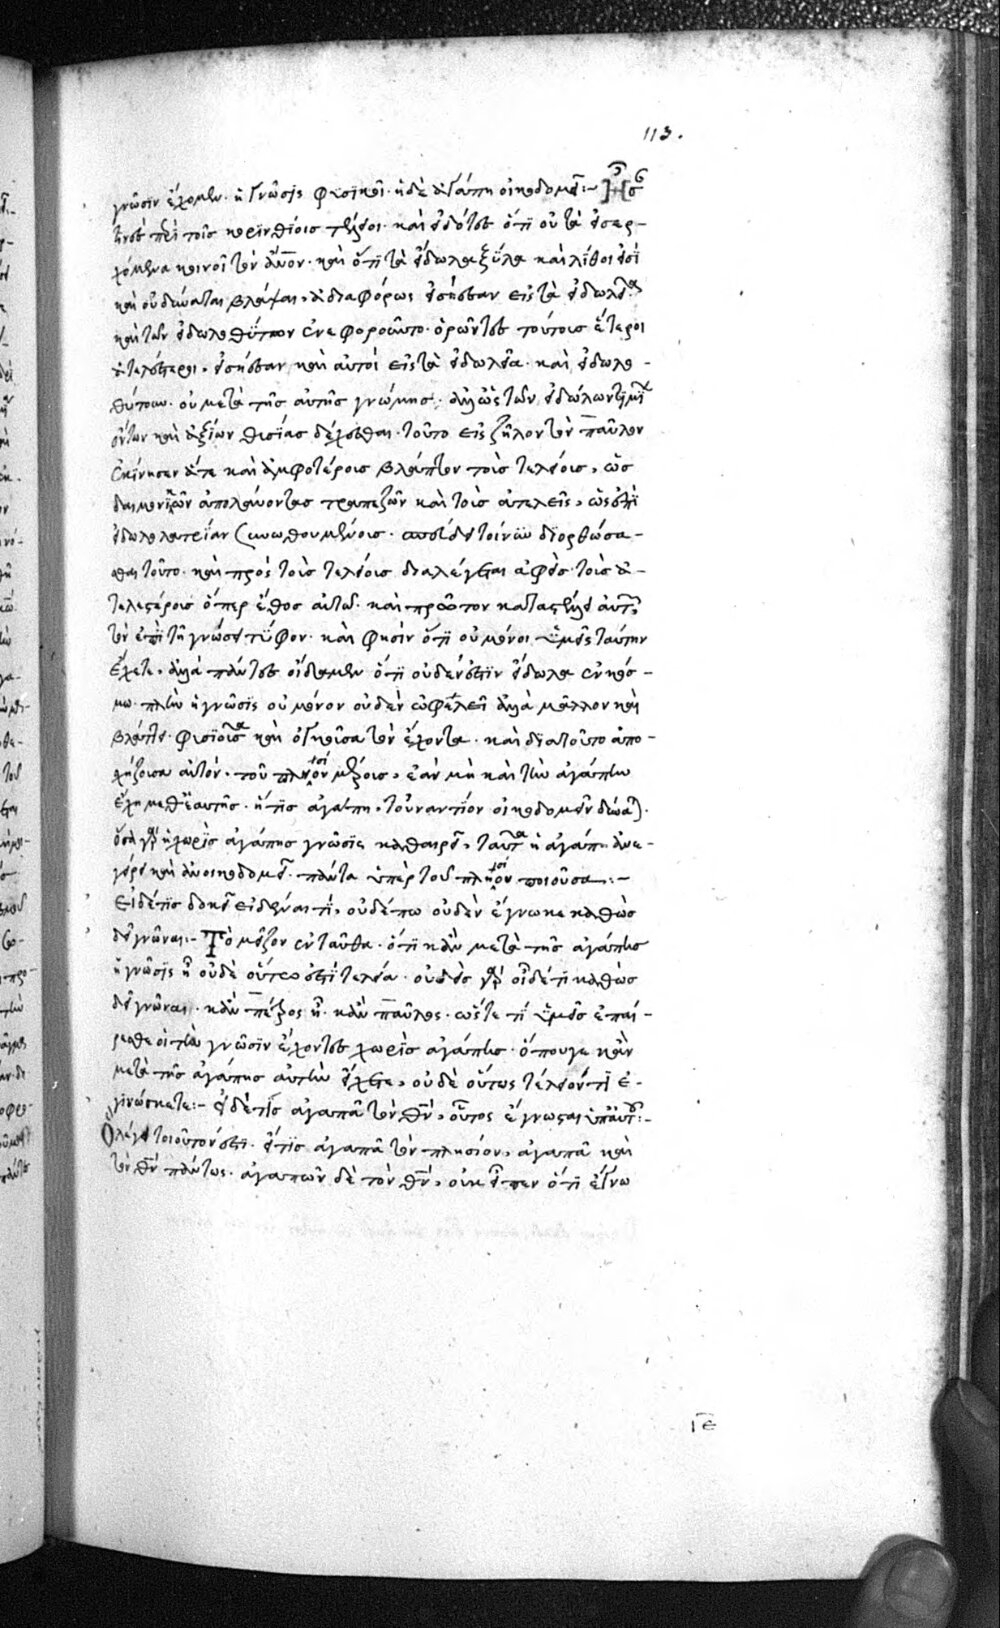 113.
γνῶσιν ἔχομεν· ἡ γνῶσις φυσιοῖ· ἡ δὲ ἀγάπη οἰκοδομεῖ:-
τινὲς παρὰ τοῖς κορινθίοις τέλειοι· καὶ εἰδότες ὅτι οὐ τὰ εἰσερ-
χόμενα κοινοῖ τὸν ἄνον· καὶ ὅτι τὰ εἴδωλα ξύλα καὶ λίθοι εἰσὶ
καὶ οὐ δύναται βλάψαι, ἀδιαφόρως εἰσῄεσαν εἰς τὰ εἰδωλεῖα
καὶ τῶν εἰδωλοθύτων ἐνεφοροῦντο· ὁρῶντες τούτους ἕτεροι
ἀτελέστεροι, εἰσῄεσαν καὶ αὐτοὶ εἰς τὰ εἰδωλεῖα· καὶ εἰδωλο-
θύτων· οὐ μετὰ τῆς αὐτῆς γνώμης· ἀλλ' ὡς τῶν εἰδώλων τιμίων
ὄντων καὶ ἀξίων θυσίας δέχεσθαι· τοῦτο εἰς ζῆλον τὸν παῦλον
ἐκίνησεν ἅτε καὶ ἀμφοτέροις βλάπτον τοὺς τελείους, ὡς
δαιμονικῶν ἀπολαύοντας τραπεζῶν καὶ τοὺς ἀτελεῖς, ὡς ἐπὶ
εἰδωλολατρείαν συνωθουμένους· σπεύδει τοίνυν διορθώσα-
σθαι τοῦτο· καὶ πρὸς τοὺς τελείους διαλέγεται ἀφεὶς τοὺς ἀ-
τελεστέρους ὅπερ ἔθος αὐτῷ· καὶ πρῶτον καταστέλλει αὐτῶν
τὸν ἐπὶ τῇ γνώσει τύφον· καὶ φησὶν ὅτι οὐ μόνοι ὑμεῖς ταύτην
ἔχετε, ἀλλὰ πάντες οἴδαμεν ὅτι οὐδέν ἐστιν εἴδωλα ἐν κόσ-
μω· πλὴν ἡ γνῶσις οὐ μόνον οὐδὲν ὠφελεῖ ἀλλὰ μᾶλλον καὶ
βλάπτει· φυσιοῦσα καὶ ὀγκοῦσα τὸν ἔχοντα· καὶ διὰ τοῦτο ἀπο-
σχίζουσα αὐτόν, τοῦ πλησίον μέρους, ἐὰν μὴ καὶ τὴν ἀγάπην
ἔχῃ μεθ' ἑαυτῆς· ἥτις ἀγάπη, τοὐναντίον οἰκοδομεῖν δύναται·
ὅσα γὰρ ἡ χωρὶς ἀγάπης γνῶσις καθαιρεῖ, ταῦτα ἡ ἀγάπη ἀνε-
γείρει καὶ ἀνοικοδομεῖ· πάντα ὑπὲρ τοῦ πλησίον ποιοῦσα:-
Εἰ δέ τις δοκεῖ εἰδέναι τι, οὐδέπω οὐδὲν ἔγνωκε καθὼς
δεῖ γνῶναι:- Τὸ μεῖζον ἐνταῦθα· ὅτι κἂν μετὰ τῆς ἀγάπης
ἡ γνῶσις ᾖ οὐδὲ οὕτως ἐστὶ τελεία· οὐδεὶς γὰρ οἶδέ τι καθὼς
δεῖ γνῶναι· κἂν πέτρος ᾖ· κἂν παῦλος· ὥστε τί ὑμεῖς ἐπαί-
ρεσθε οἱ τὴν γνῶσιν ἔχοντες χωρὶς ἀγάπης· ὅπουγε κἂν
μετὰ τῆς ἀγάπης αὐτὴν εἴχετε, οὐδὲ οὕτως τέλειόν τι ἐ-
γινώσκετε:- εἰ δέ τις ἀγαπᾶ τὸν θν, οὗτος ἔγνωσται ὑπ' αὐτοῦ:-
Ὃ λέγει τοιοῦτόν ἐστι· εἴ τις ἀγαπᾶ τὸν πλησίον, ἀγαπᾶ καὶ
τὸν θν πάντως· ἀγαπῶν δὲ τὸν θν, οὐκ εἶπεν ὅτι ἔγνω
ιε